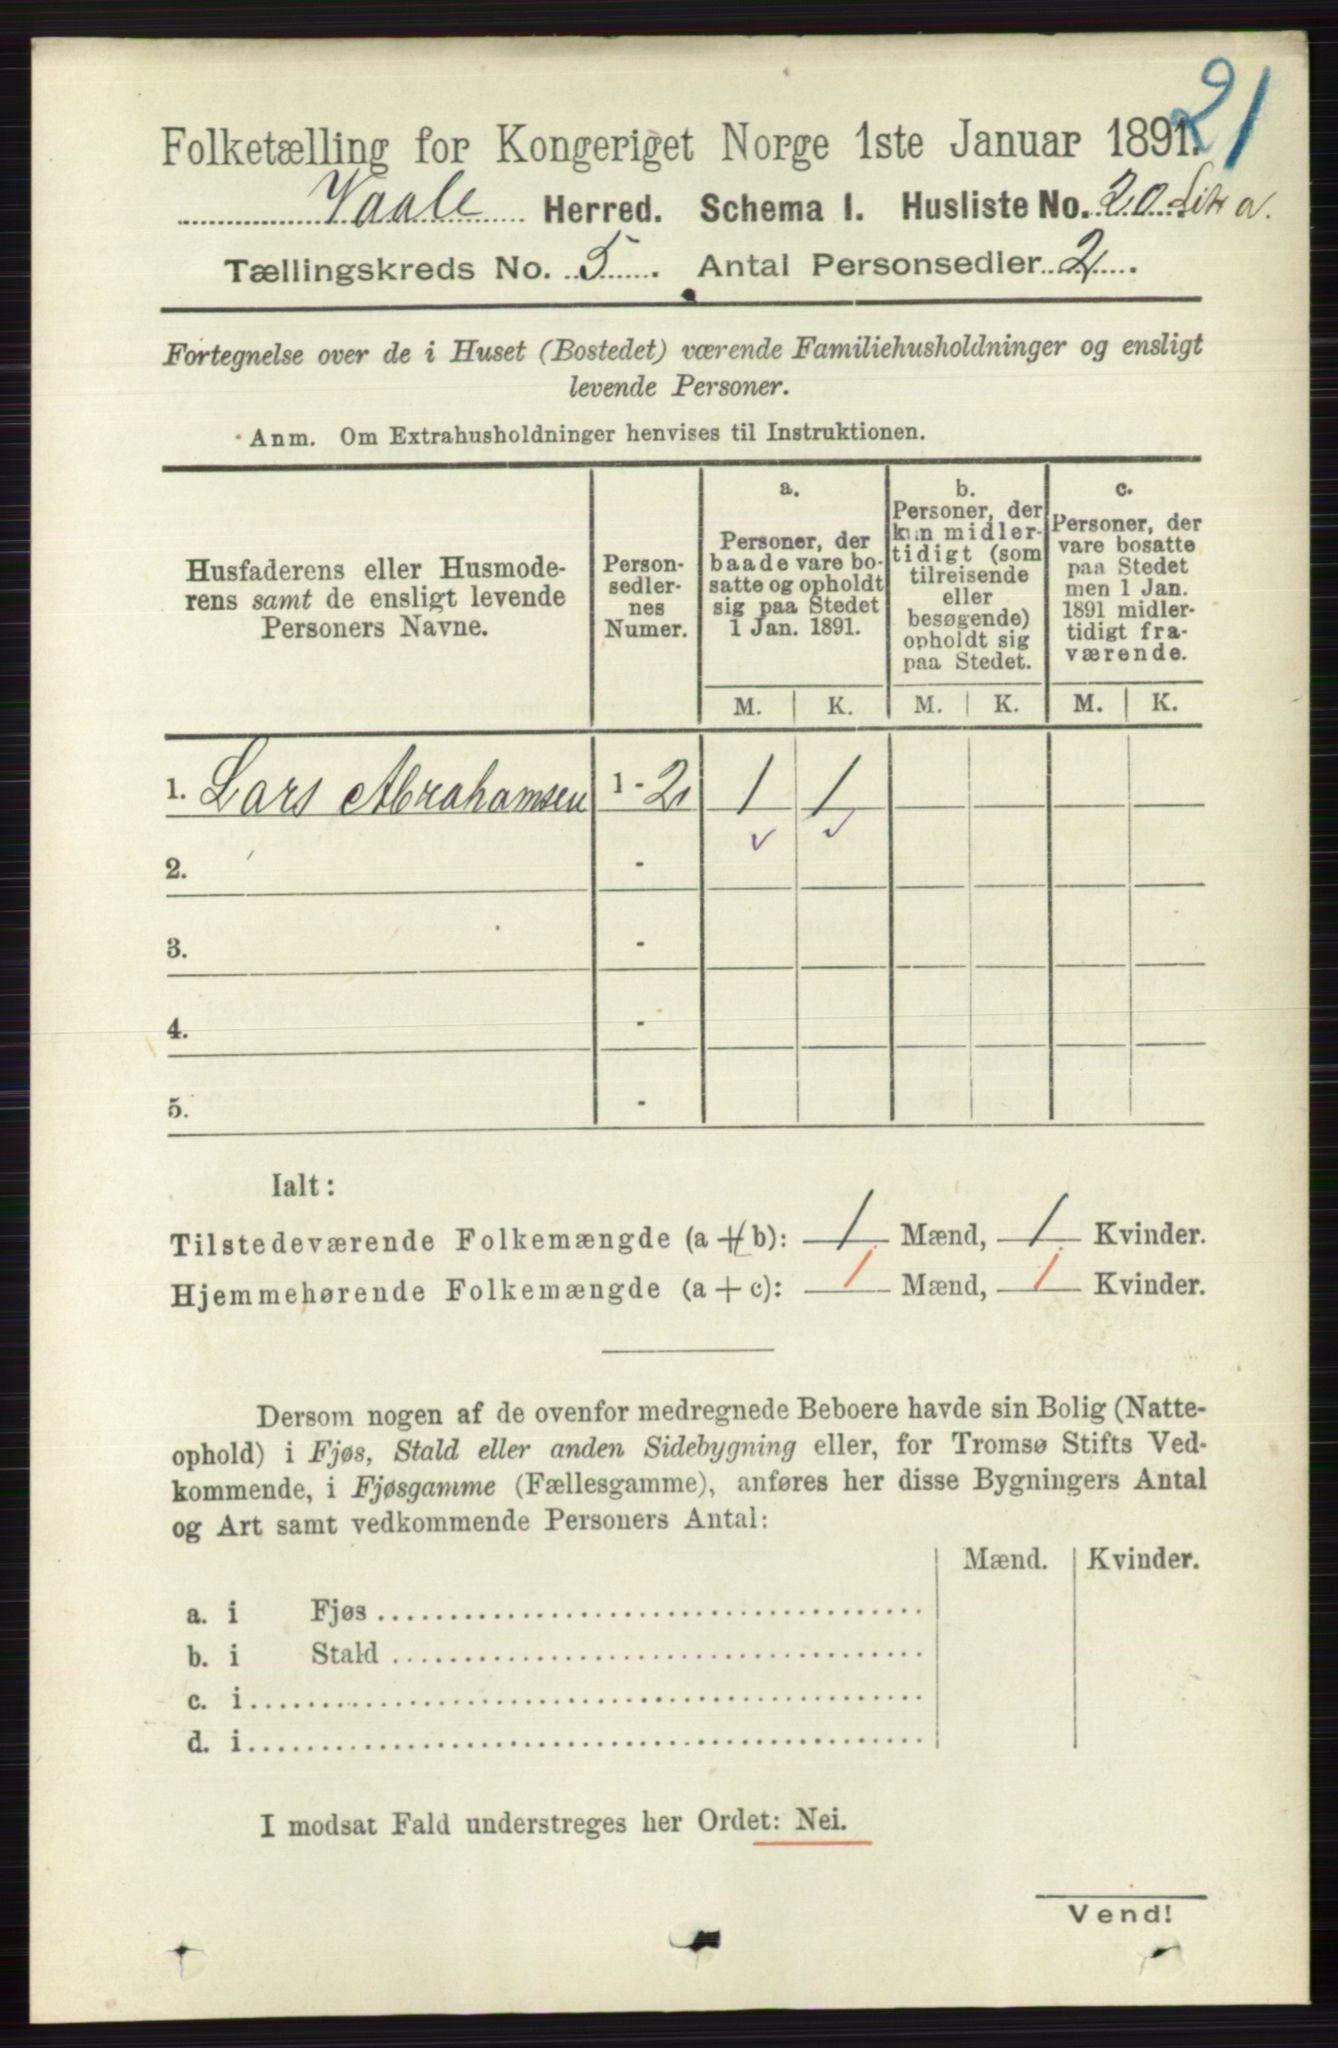 21
Folketælling for Kongeriget Norge 1ste Januar 1891.
Vaale Herred. Schema I. Husliste No. 20 Litr a.
Tællingskreds No. 5. Antal Personsedler 2.
Fortegnelse over de i Huset (Bostedet) værende Familiehusholdninger og ensligt
levende Personer.
Anm. Om Extrahusholdninger henvises til Instruktionen.
Husfaderens eller Husmode-
rens samt de ensligt levende
Personers Navne.
Person-
sedler-
nes
Numer.
a.
Personer, der
baade vare bo-
satte og opholdt
sig paa Stedet
1 Jan. 1891.
b.
Personer, der
kun midler-
tidigt (som
tilreisende
eller
besøgende)
opholdt sig
paa Stedet.
c.
Personer, der
vare bosatte
paa Stedet
men 1 Jan.
1891 midler-
tidigt fra-
værende.
M. K. M. K. M. K.
1. Lars Abrahamsen 1 - 2 1 1
2. -
3. -
4. -
5. -
Ialt:
Tilstedeværende Folkemængde (a + b): 1 Mænd, 1 Kvinder.
Hjemmehørende Folkemængde (a + c): 1 Mænd, 1 Kvinder.
Dersom nogen af de ovenfor medregnede Beboere havde sin Bolig (Natte-
ophold) i Fjøs, Stald eller anden Sidebygning eller, for Tromsø Stifts Ved-
kommende, i Fjøsgamme (Fællesgamme), anføres her disse Bygningers Antal
og Art samt vedkommende Personers Antal:
Mænd. Kvinder.
a. i Fjøs
b. i Stald
c. i
d. i
I modsat Fald understreges her Ordet: Nei.
Vend!